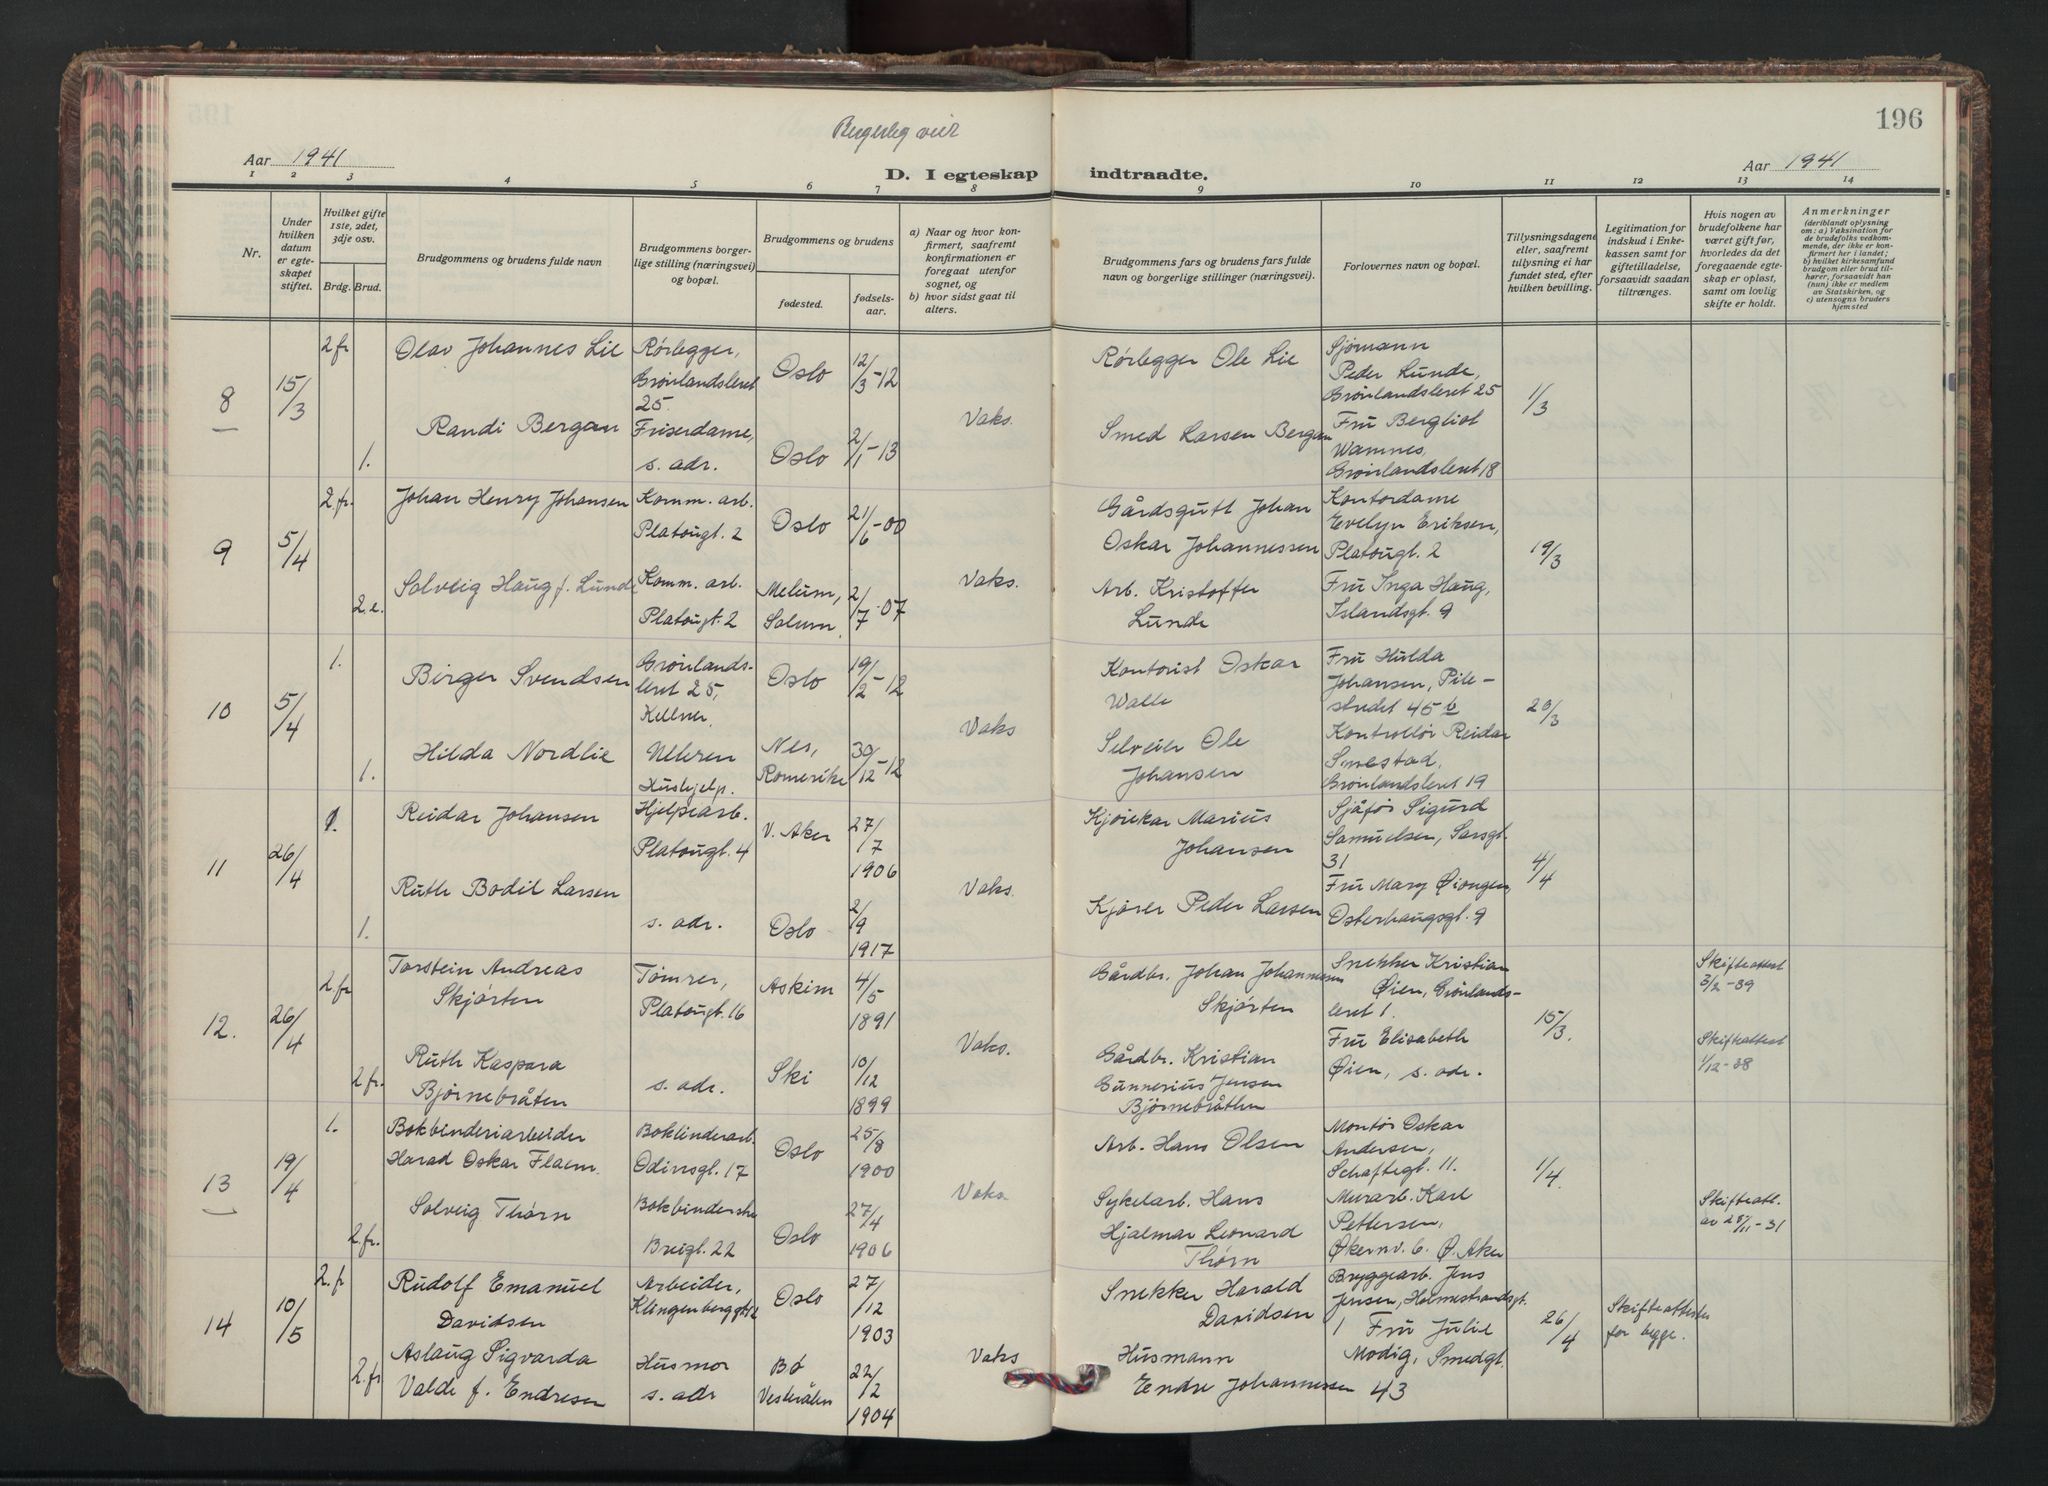 196
Aar 1941
D. I egteskap indtraadte.
Aar 1941
1 2 3 4 5 6 7 8 9 10 11 12 13 14
Nr.
Under
hvilken
datum
er egte-
skapet
stiftet.
Hvilket gifte
1ste, 2det,
3dje osv.
Brdg. Brud.
Brudgommens og brudens fulde navn
Brudgommens borger-
lige stilling (næringsvei)
og bopæl.
Brudgommens og brudens
fødested.
fødsels-
aar.
a) Naar og hvor kon-
firmert, saafremt
konfirmationen er
foregaat utenfor
sognet, og
b) hvor sidst gaat til
alters.
Brudgommens fars og brudens fars fulde
navn og borgerlige stillinger (næringsvei).
Forlovernes navn og bopæl.
Tillysningsdagene
eller, saafremt
tillysning ei har
fundet sted, efter
hvilken bevilling.
Legitimation for
indskud i Enke-
kassen samt for
giftetilladelse,
forsaavidt saadan
tiltrænges.
Hvis nogen av
brudefolkene har
været gift før,
hvorledes da det
foregaaende egte-
skap er opløst,
samt om lovlig
skifte er holdt.
Anmerkninger
(deriblandt oplysning
om: a) Vaksination for
de brudefolks vedkom-
mende, der ikke er kon-
firmert her i landet;
b) hvilket kirkesamfund
brudgom eller brud til-
hører, forsaavidt han
(hun) ikke er medlem
av Statskirken, og
c) utensogns bruders
hjemsted
8
15/3
2 fr
Olav Johannes Lie
Rørlegger,
Grønlandsleret
25.
Oslo
12/3-12
Rørlegger Ole Lie
Sjømann
Peder Lunde,
Grønlandsleret 25
1/3
1.
Randi Bergan
Friserdame,
s. adr.
Oslo
2/1-13
Vaks.
Smed Larsen Bergan
Fru Bergliot
Wamnes,
Grønlandsleret 18
9
5/4
2. fr.
Johan Henry Johansen
Komm. arb.
Platougt. 2
Oslo
21/6-00
Gårdsgutt Johan
Oskar Johannessen
Kontordame
Evelyn Eriksen,
Platougt. 2
19/3
2. e.
Solveig Haug f. Lunde
Komm. arb.
Platougt. 2
Melum,
Solum.
2/7-07
Vaks.
Arb. Kristoffer
Lunde
Fru Inga Haug,
Islandsgt. 9
10
5/4
1.
Birger Svendsen
Grønlands-
leret 25,
Kellner.
Oslo
19/2-12
Kontorist Oskar
Walle
Fru Hulda
Johansen, Pile-
stredet 45 b
20/3
1.
Hilda Nordlie
Hushjelp.
Nes,
Romerike
30/12-12
Vaks
Ole
Johansen
Kontrollør Reidar
Smestad,
Grønlandsleret 19
11
26/4
1.
Reidar Johansen
Hjelpearb.
Platougt. 4
V. Aker
27/7
1906
Marius
Johansen
Sjåfør Sigurd
Samuelsen, Sarsgt.
31
4/4
1.
Ruth Bodil Larsen
s. adr.
Oslo
2/9
1917
Vaks.
Kjører Peder Larsen
Fru Mary Øiongen,
Osterhaugsgt. 9
12.
26/4
2. fr
Torstein Andreas
Skjørten
Tømrer,
Platougt. 16
Askim
4/5
1891
Gårdbr. Johan Johannessen
Skjørten
Snekker Kristian
Øien, Grønlands-
leret 1.
15/3.
Skifteattest
3/2-39
2. fr.
Ruth Kaspara
Bjørnebråten
s. adr.
Ski
10/12
1899
Vaks.
Gårdbr. Kristian
Gunnerius Jensen
Bjørnebråthen
Fru Elisabeth
Øien, s. adr.
Skifteattest
1/12-38
13
19/4
1.
Bokbinderiarbeider
Harad Oskar Flaem.
Bokbinderarb.
Odinsgt. 17
Oslo
25/8
1900
Arb. Hans Olsen
Montør Oskar
Andersen,
Schaftegt. 11.
1/4.
2. fr.
Solveig Thørn
Bokbinderske
Breigt. 22
Oslo
27/4
1906
Vaks.
Sykelarb. Hans
Hjalmar Leonard
Thørn
Murarb. Karl
Pettersen,
Økernv. 6. Ø. Aker
Skifteatt.
av 25/11-31
14
10/5
2. fr
Rudolf Emanuel
Davidsen
Arbeider,
Klingenberggt 12
Oslo
27/12
1903
Snekker Harald
Davidsen
Bryggearb. Jens
Jensen, Holmestrandsgt.
1 Fru Julie
26/4
Skifteattester
for begge.
2. fr
Aslaug Sigvarda
Valde f. Endresen
Husmor
s. adr
Bø
Vesterålen
22/2
1904
Vaks
Husmann
Endre Johannessen
Modig, Smedgt.
43